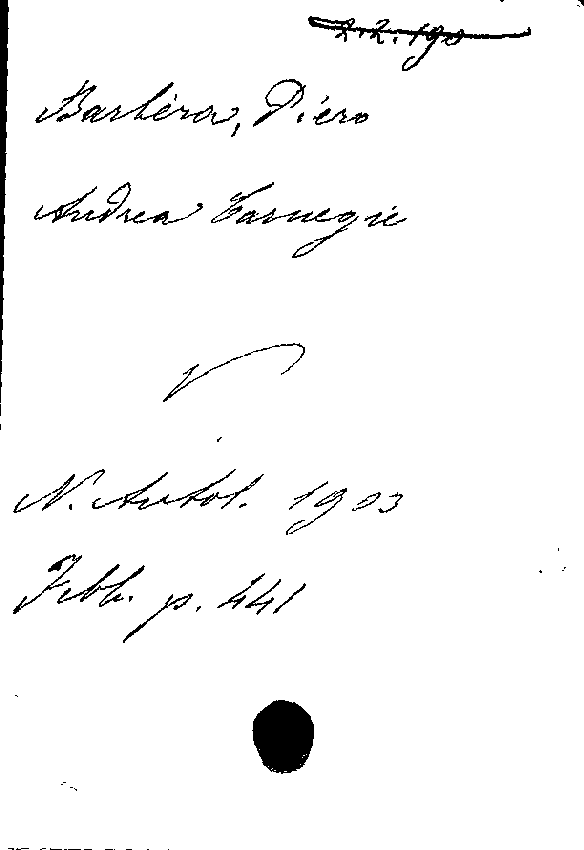 2.2.190
Barbèra, Piero
Andrea Carnegie
N. Antol. 1903
Febb. p. 441